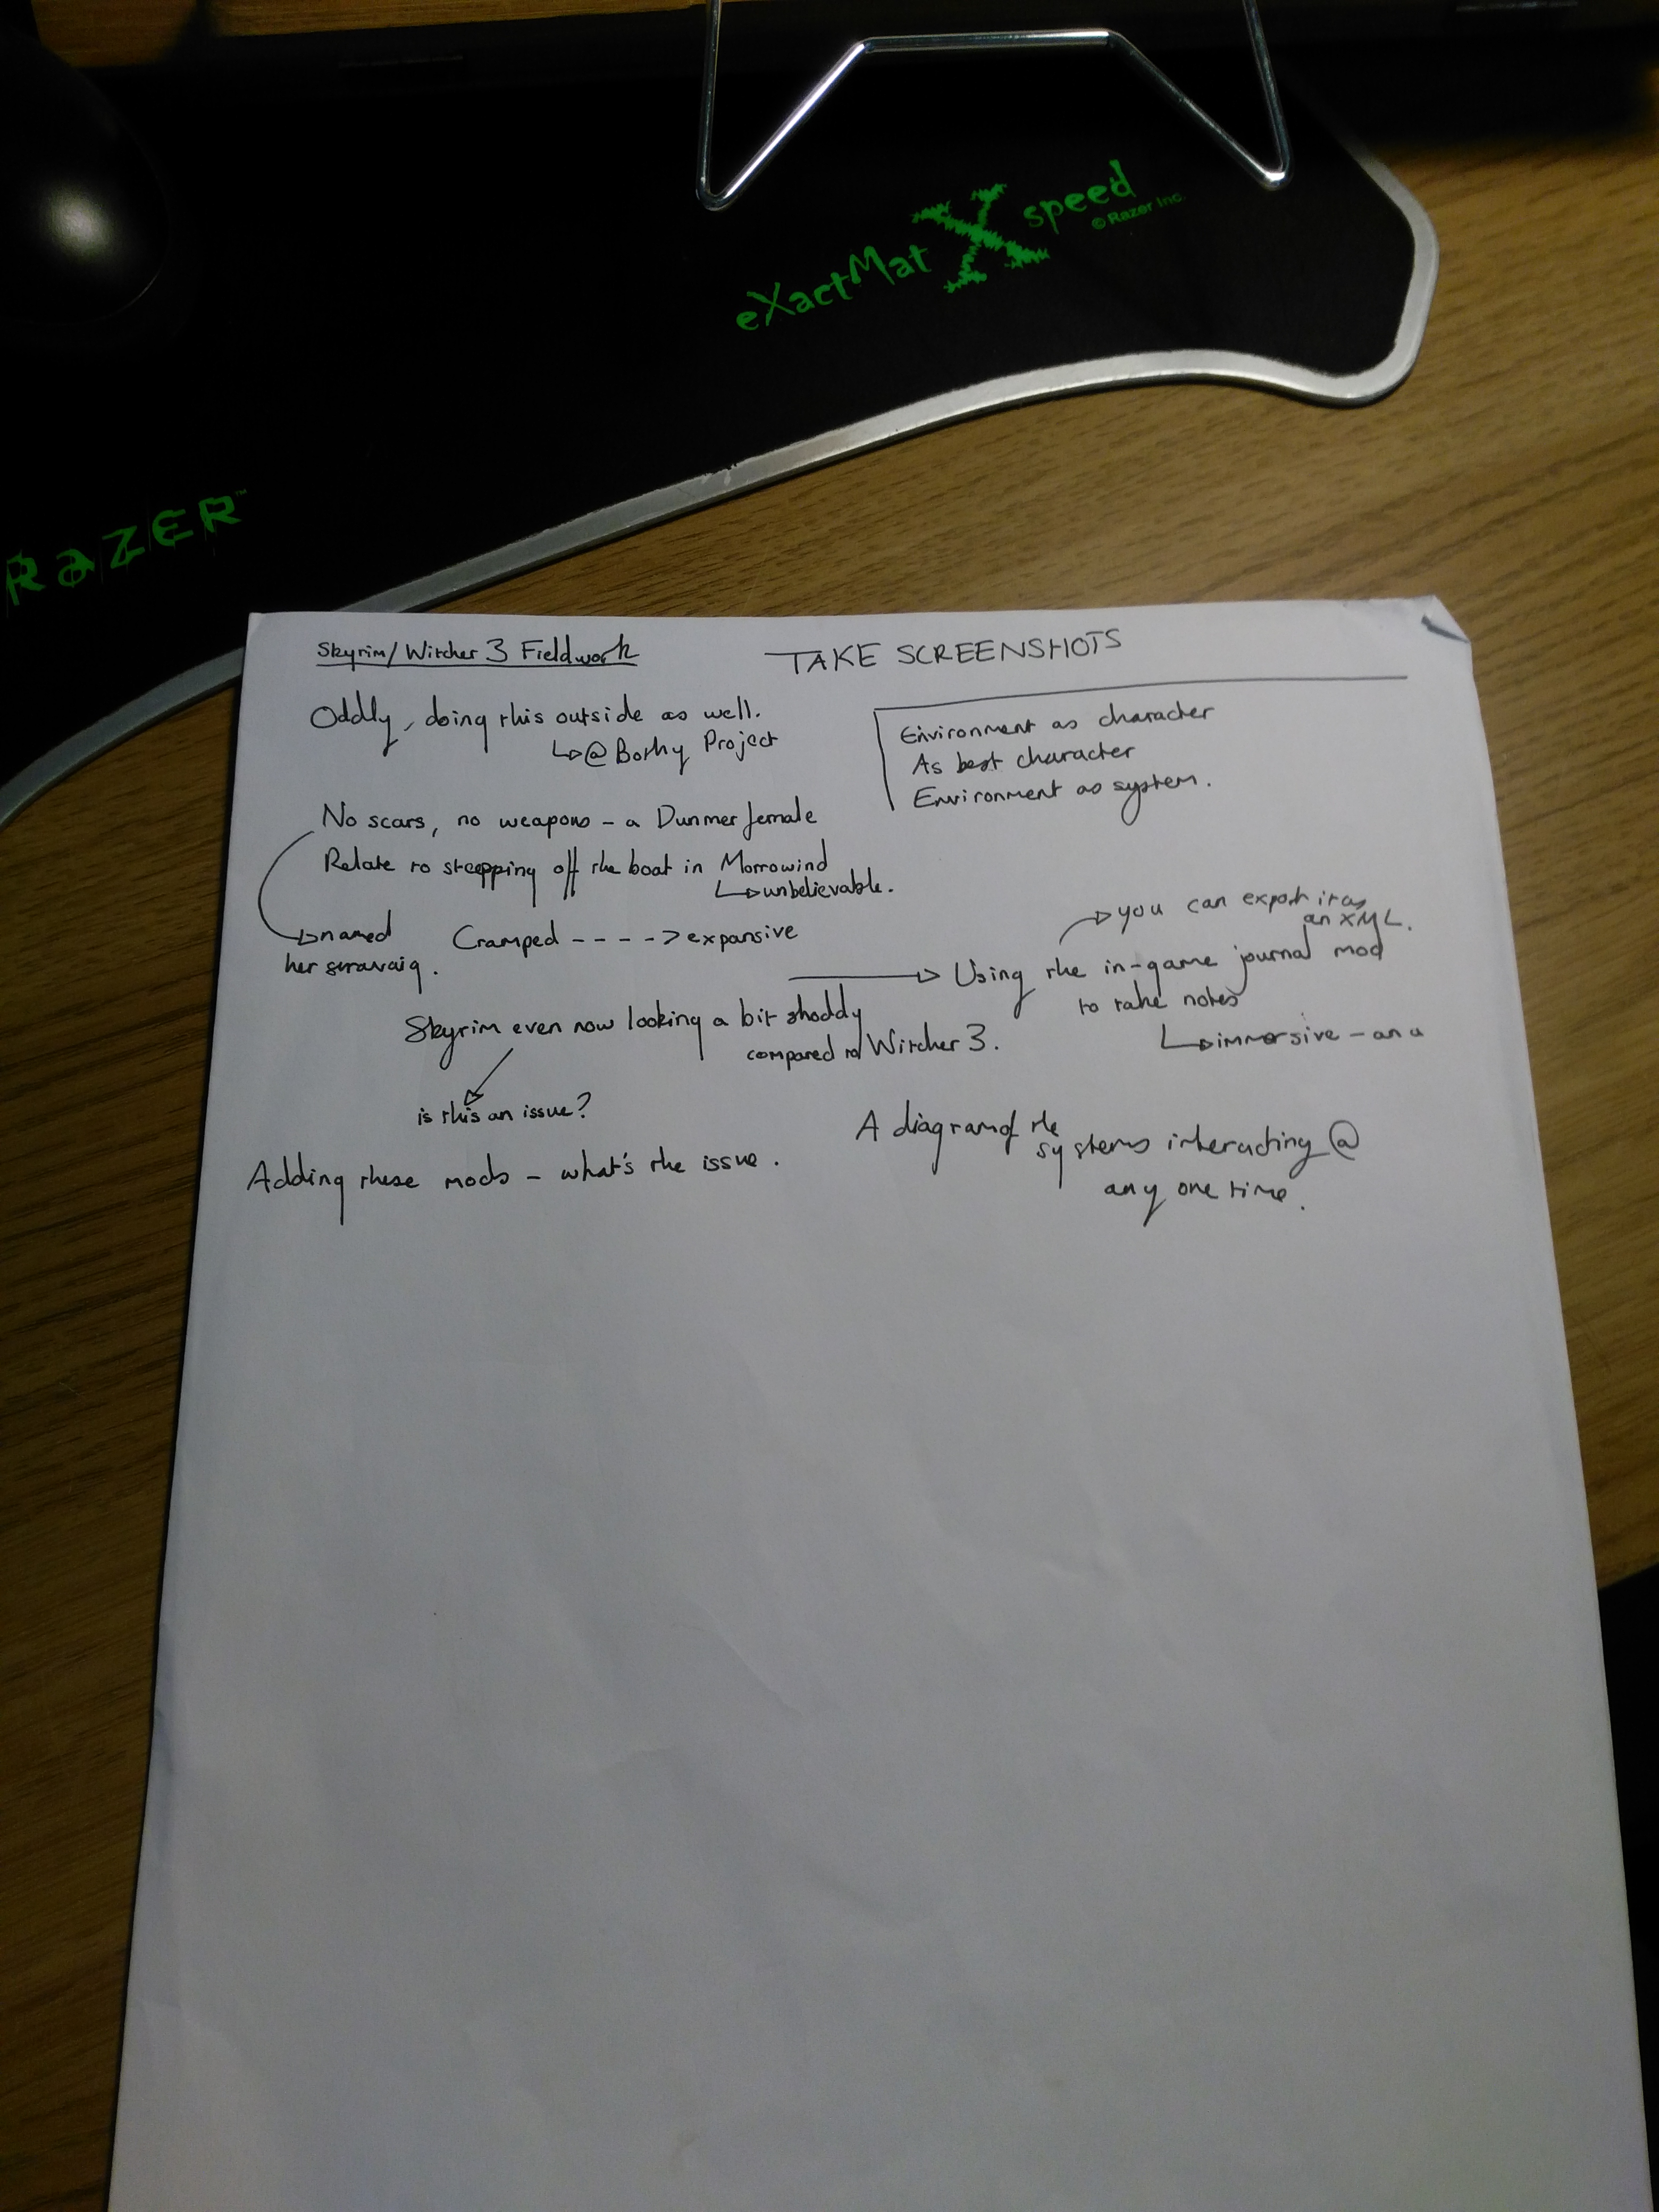 eXactMat X speed
© Razer Inc.
RAZER™
Skyrim/Witcher 3 Fieldwork
TAKE SCREENSHOTS
Oddly, doing this outside as well.
↳@Bothy Project
Environment as character
As best character
Environment as system.
No scars, no weapons - a Dunmer female
Relate to stepping off the boat in Morrowind
↳unbelievable.
→named
her stravaig.
Cramped ----> expansive
→you can export it as
an XML.
→ Using the in-game journal mod
to take notes
↳immersive - an a
Skyrim even now looking a bit shoddy
compared to Witcher 3.
is this an issue?
A diagram of the
systems interacting @
any one time.
Adding these mods - what's the issue.